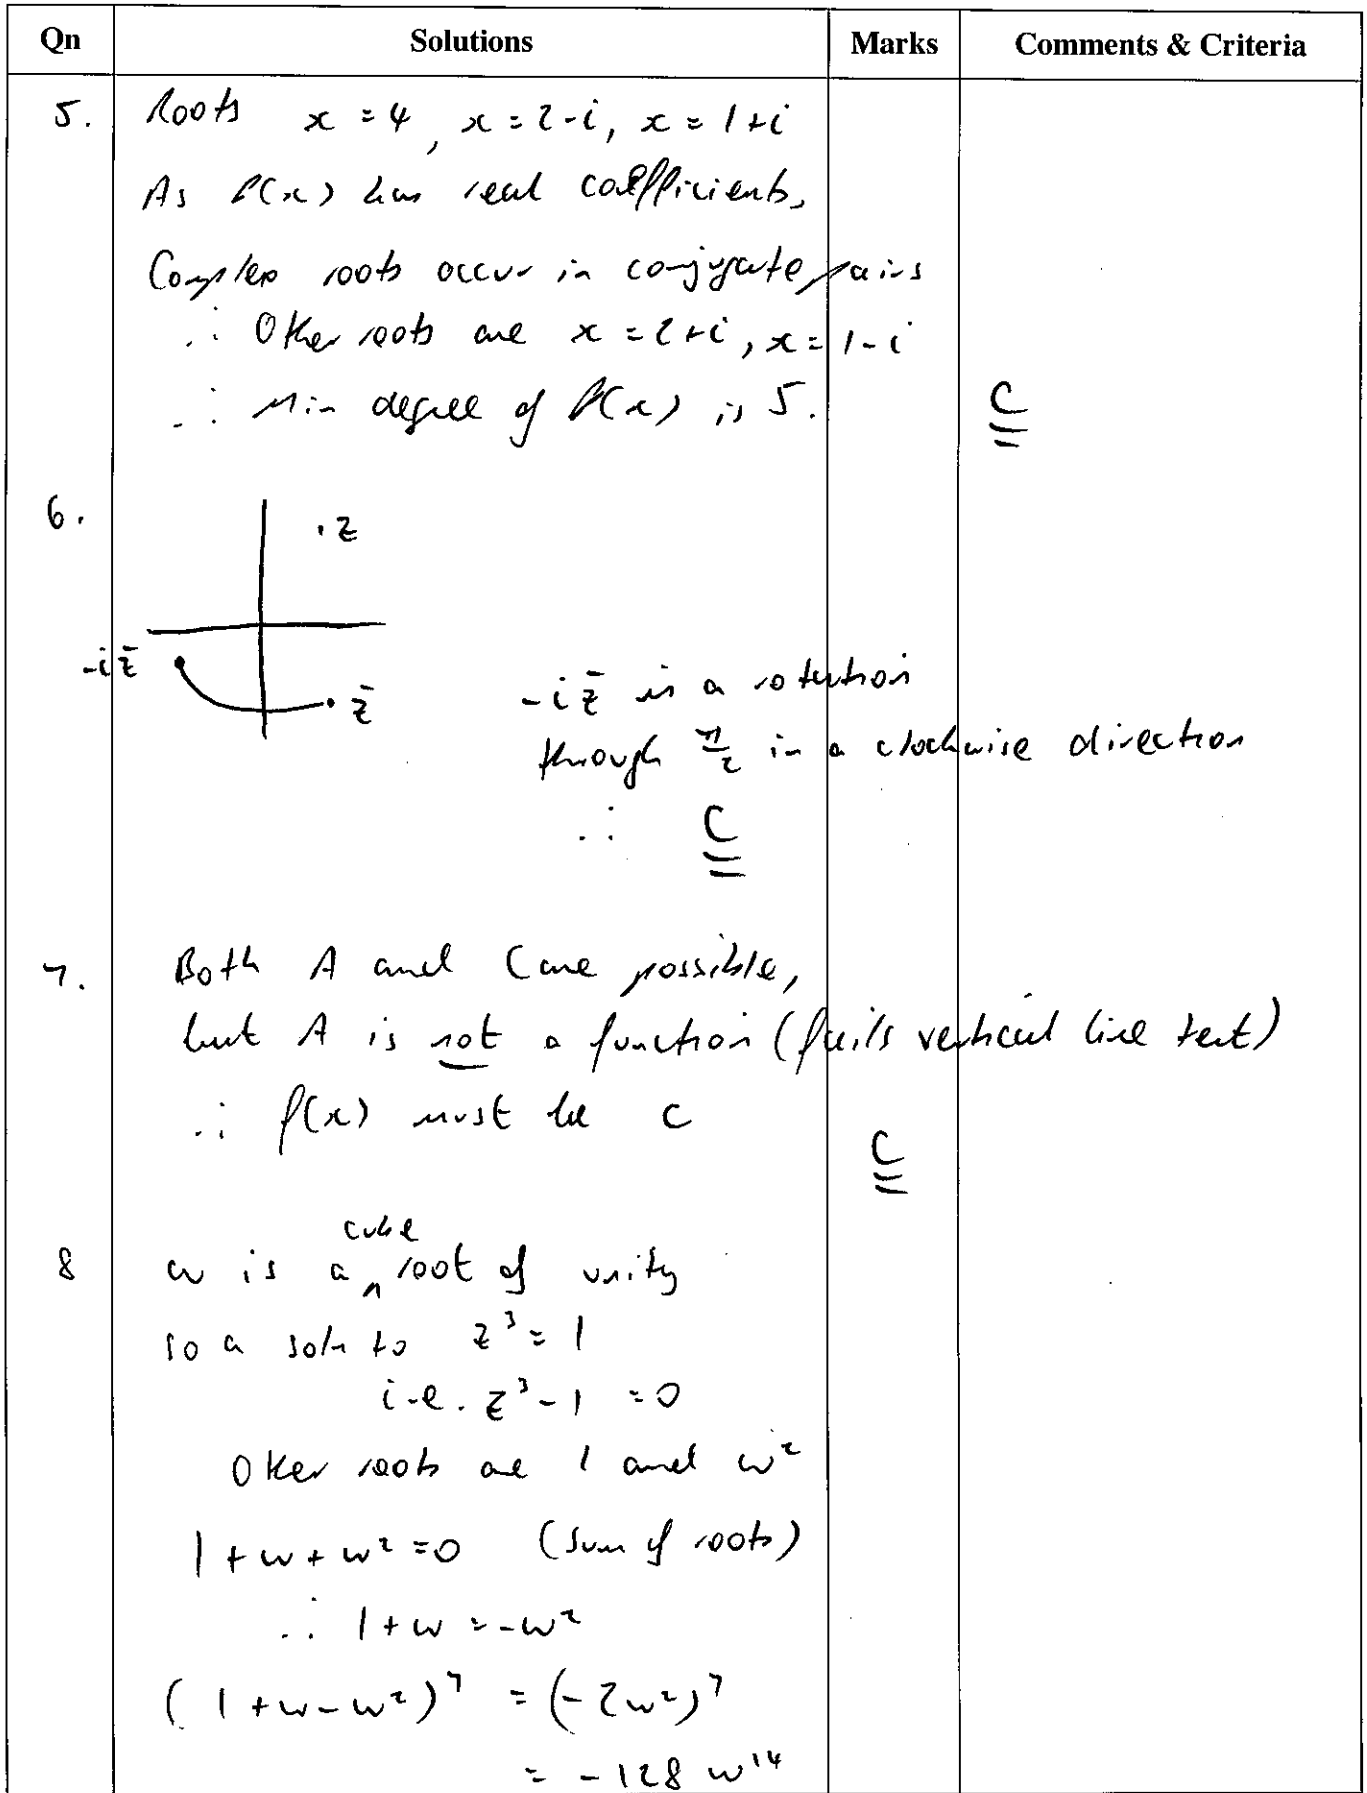 Qn Solutions Marks Comments & Criteria
5. Roots x = 4, x = 2-i, x = 1+i
As P(x) has real coefficients,
Complex roots occur in conjugate pairs
∴ Other roots are x = 2+i, x = 1-i
∴ Min degree of P(x) is 5. C
6.
. z
-i z̄
. z̄
-i z̄ is a rotation
through π/2 in a clockwise direction
∴ C
7. Both A and C are possible,
but A is not a function (fails vertical line test)
∴ f(x) must be C
C
cube
8 w is a ^ root of unity
so a soln to z³ = 1
i.e. z³ - 1 = 0
Other roots are 1 and w²
1 + w + w² = 0 (Sum of roots)
∴ 1 + w = -w²
(1 + w - w²)⁷ = (-2w²)⁷
= -128 w¹⁴